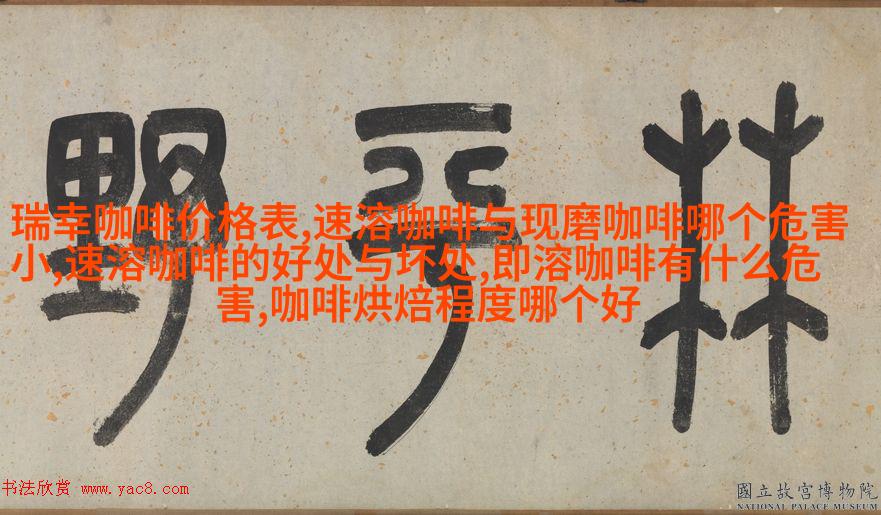 林平野
瑞幸咖啡价格表,速溶咖啡与现磨咖啡哪个危害
小,速溶咖啡的好处与坏处,即溶咖啡有什么危
害,咖啡烘焙程度哪个好
书法欣赏 www.yac8.com
國立故宮博物院
NATIONAL PALACE MUSEUM